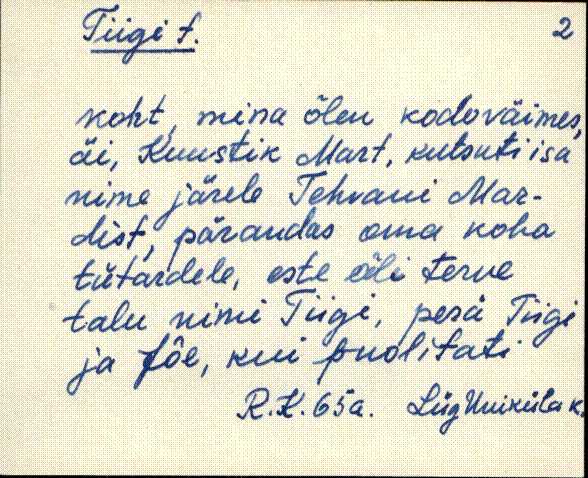 Tiigi t. 2
koht, mina õlen kodoväimes,
äi, Kuustik Mart, kutsuti isa
nime järele Tehvani Mar-
dist, pärandas oma koha
tütardele, este õli terve
talu nimi Tiigi, perä Tiigi
ja Jõe, kui puolitati
R.K. 65a. Lüg Uniküla k.